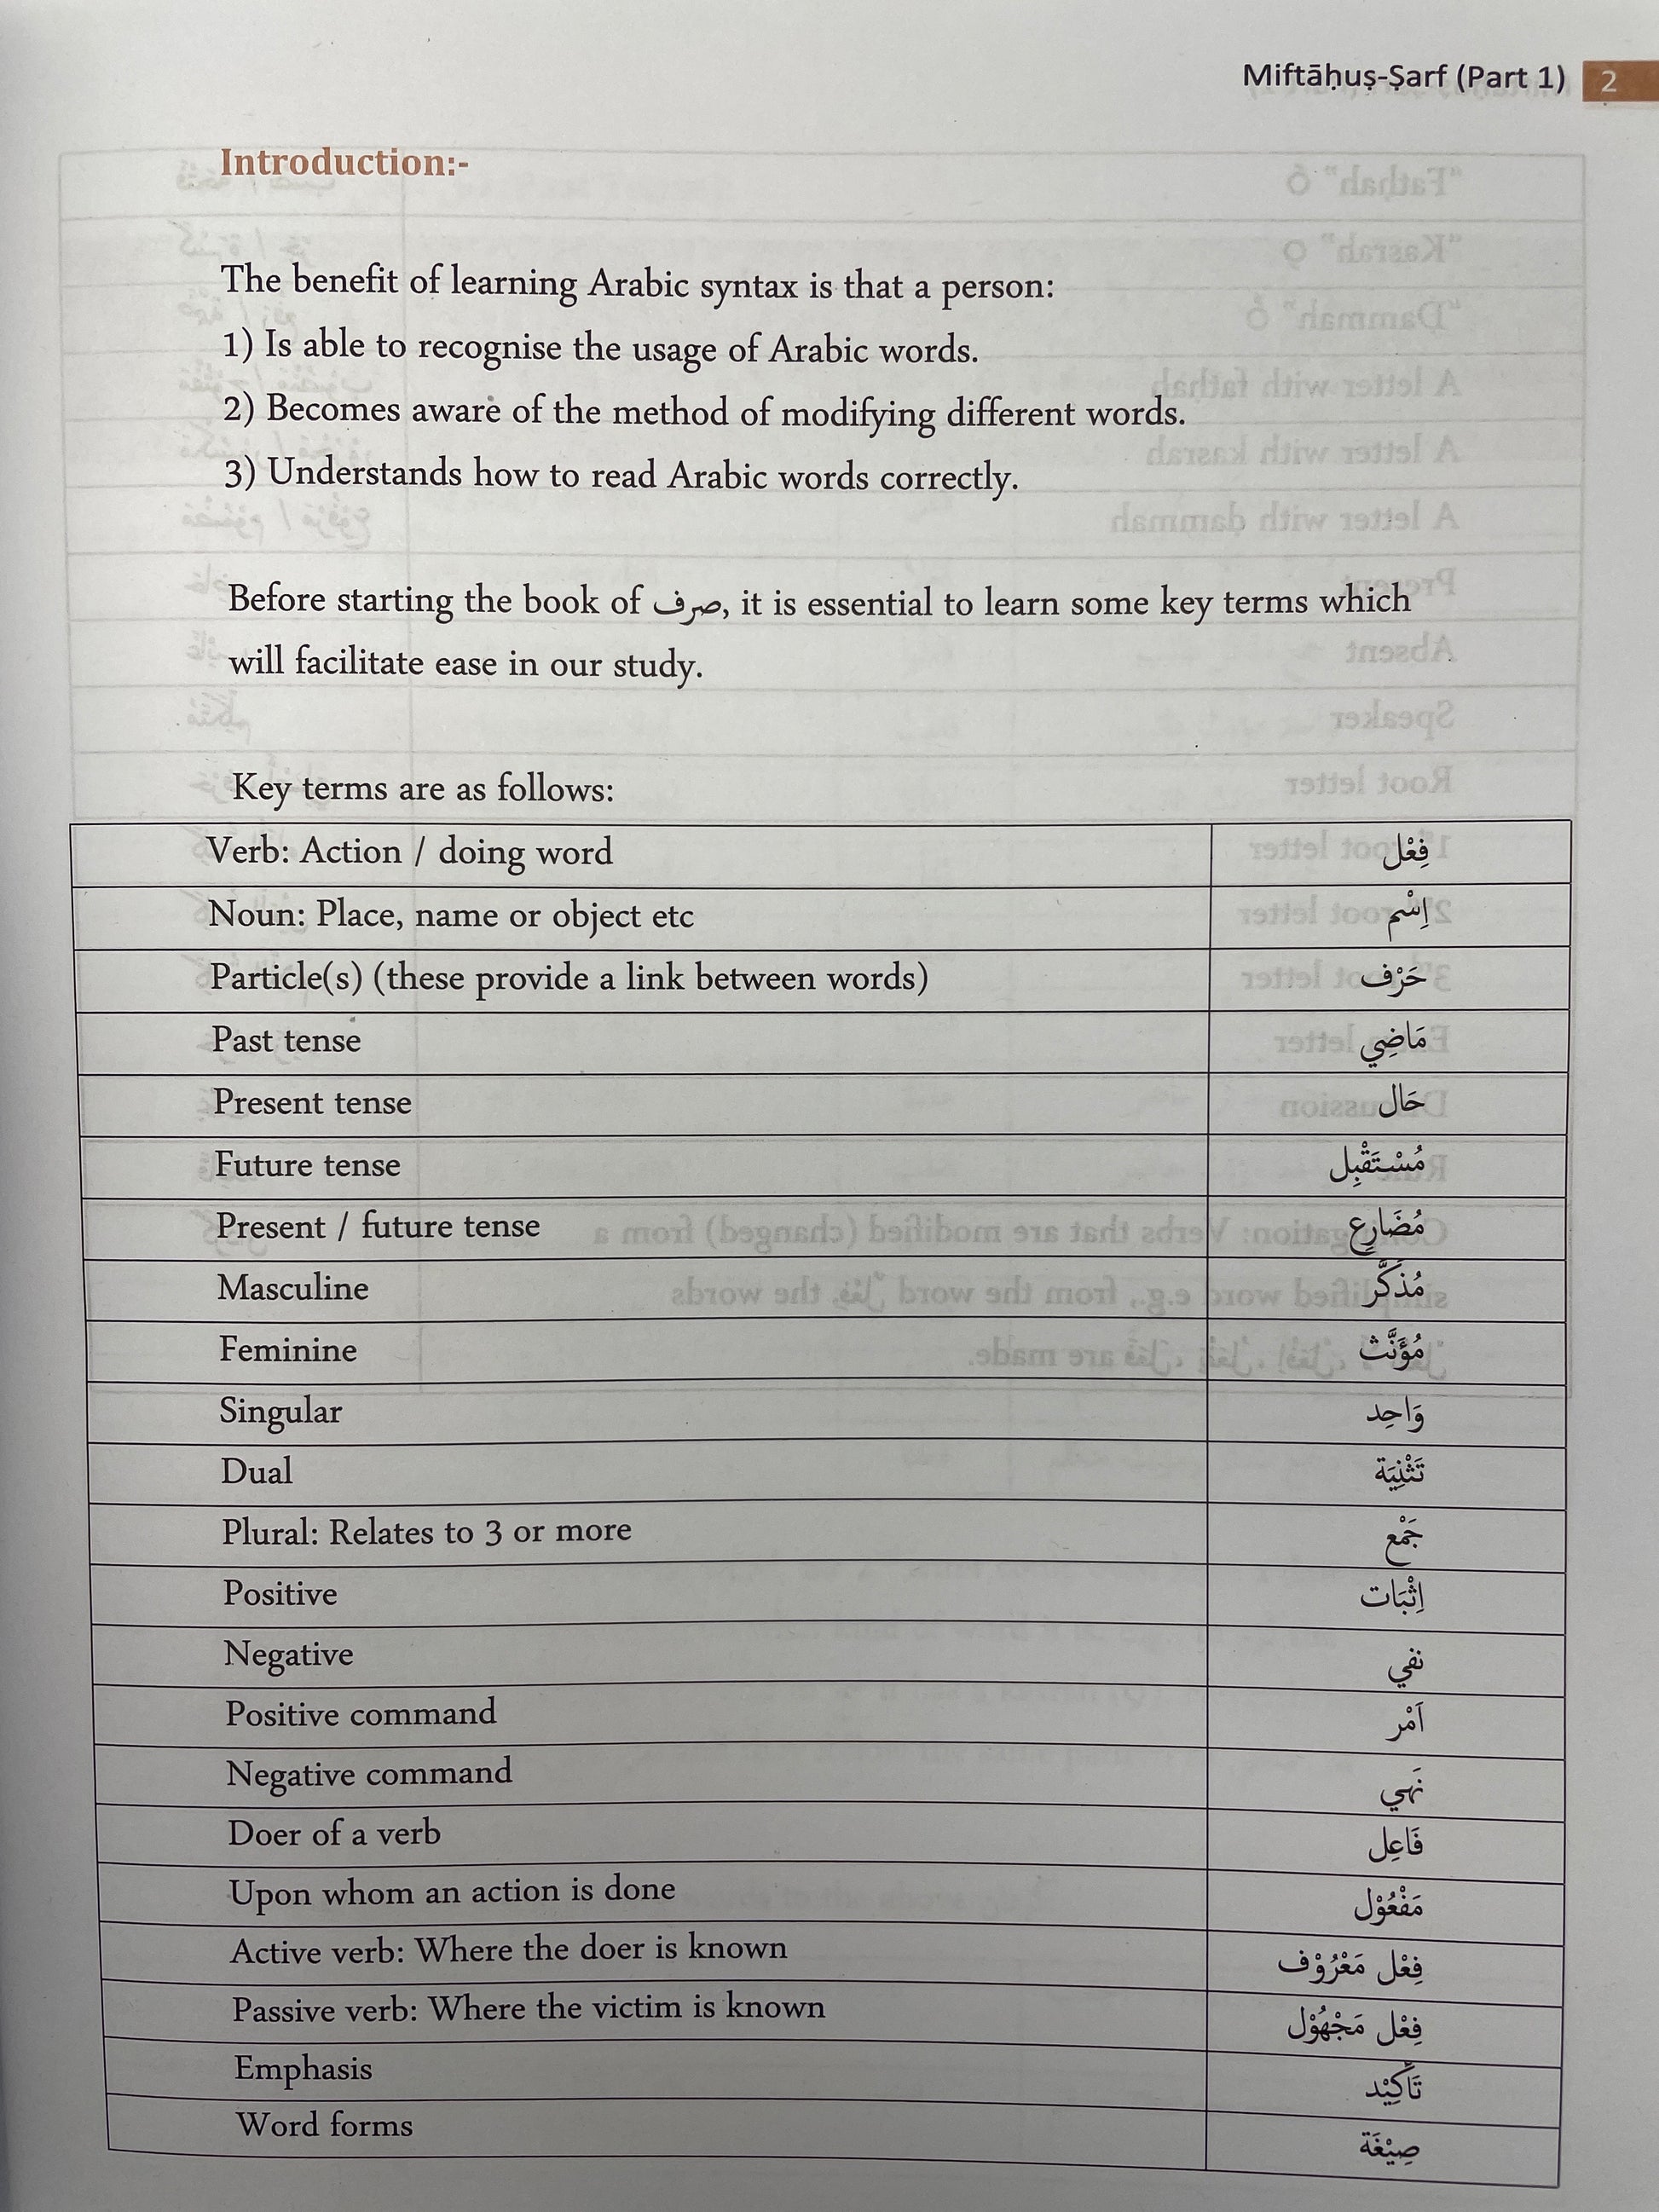 Miftāḥuṣ-Ṣarf (Part 1) 2
Introduction:-
The benefit of learning Arabic syntax is that a person:
1) Is able to recognise the usage of Arabic words.
2) Becomes aware of the method of modifying different words.
3) Understands how to read Arabic words correctly.
Before starting the book of صرف, it is essential to learn some key terms which
will facilitate ease in our study.
Key terms are as follows:
Verb: Action / doing word فِعْل
Noun: Place, name or object etc اِسْم
Particle(s) (these provide a link between words) حَرْف
Past tense مَاضِي
Present tense حَال
Future tense مُسْتَقْبِل
Present / future tense مُضَارِع
Masculine مُذَكَّر
Feminine مُؤَنَّث
Singular وَاحِد
Dual تَثْنِيَة
Plural: Relates to 3 or more جَمْع
Positive اِثْبَات
Negative نفي
Positive command اَمْر
Negative command نَهي
Doer of a verb فَاعِل
Upon whom an action is done مَفْعُوْل
Active verb: Where the doer is known فِعْل مَعْرُوْف
Passive verb: Where the victim is known فِعْل مَجْهُوْل
Emphasis تَاكِيْد
Word forms صِيْغَة